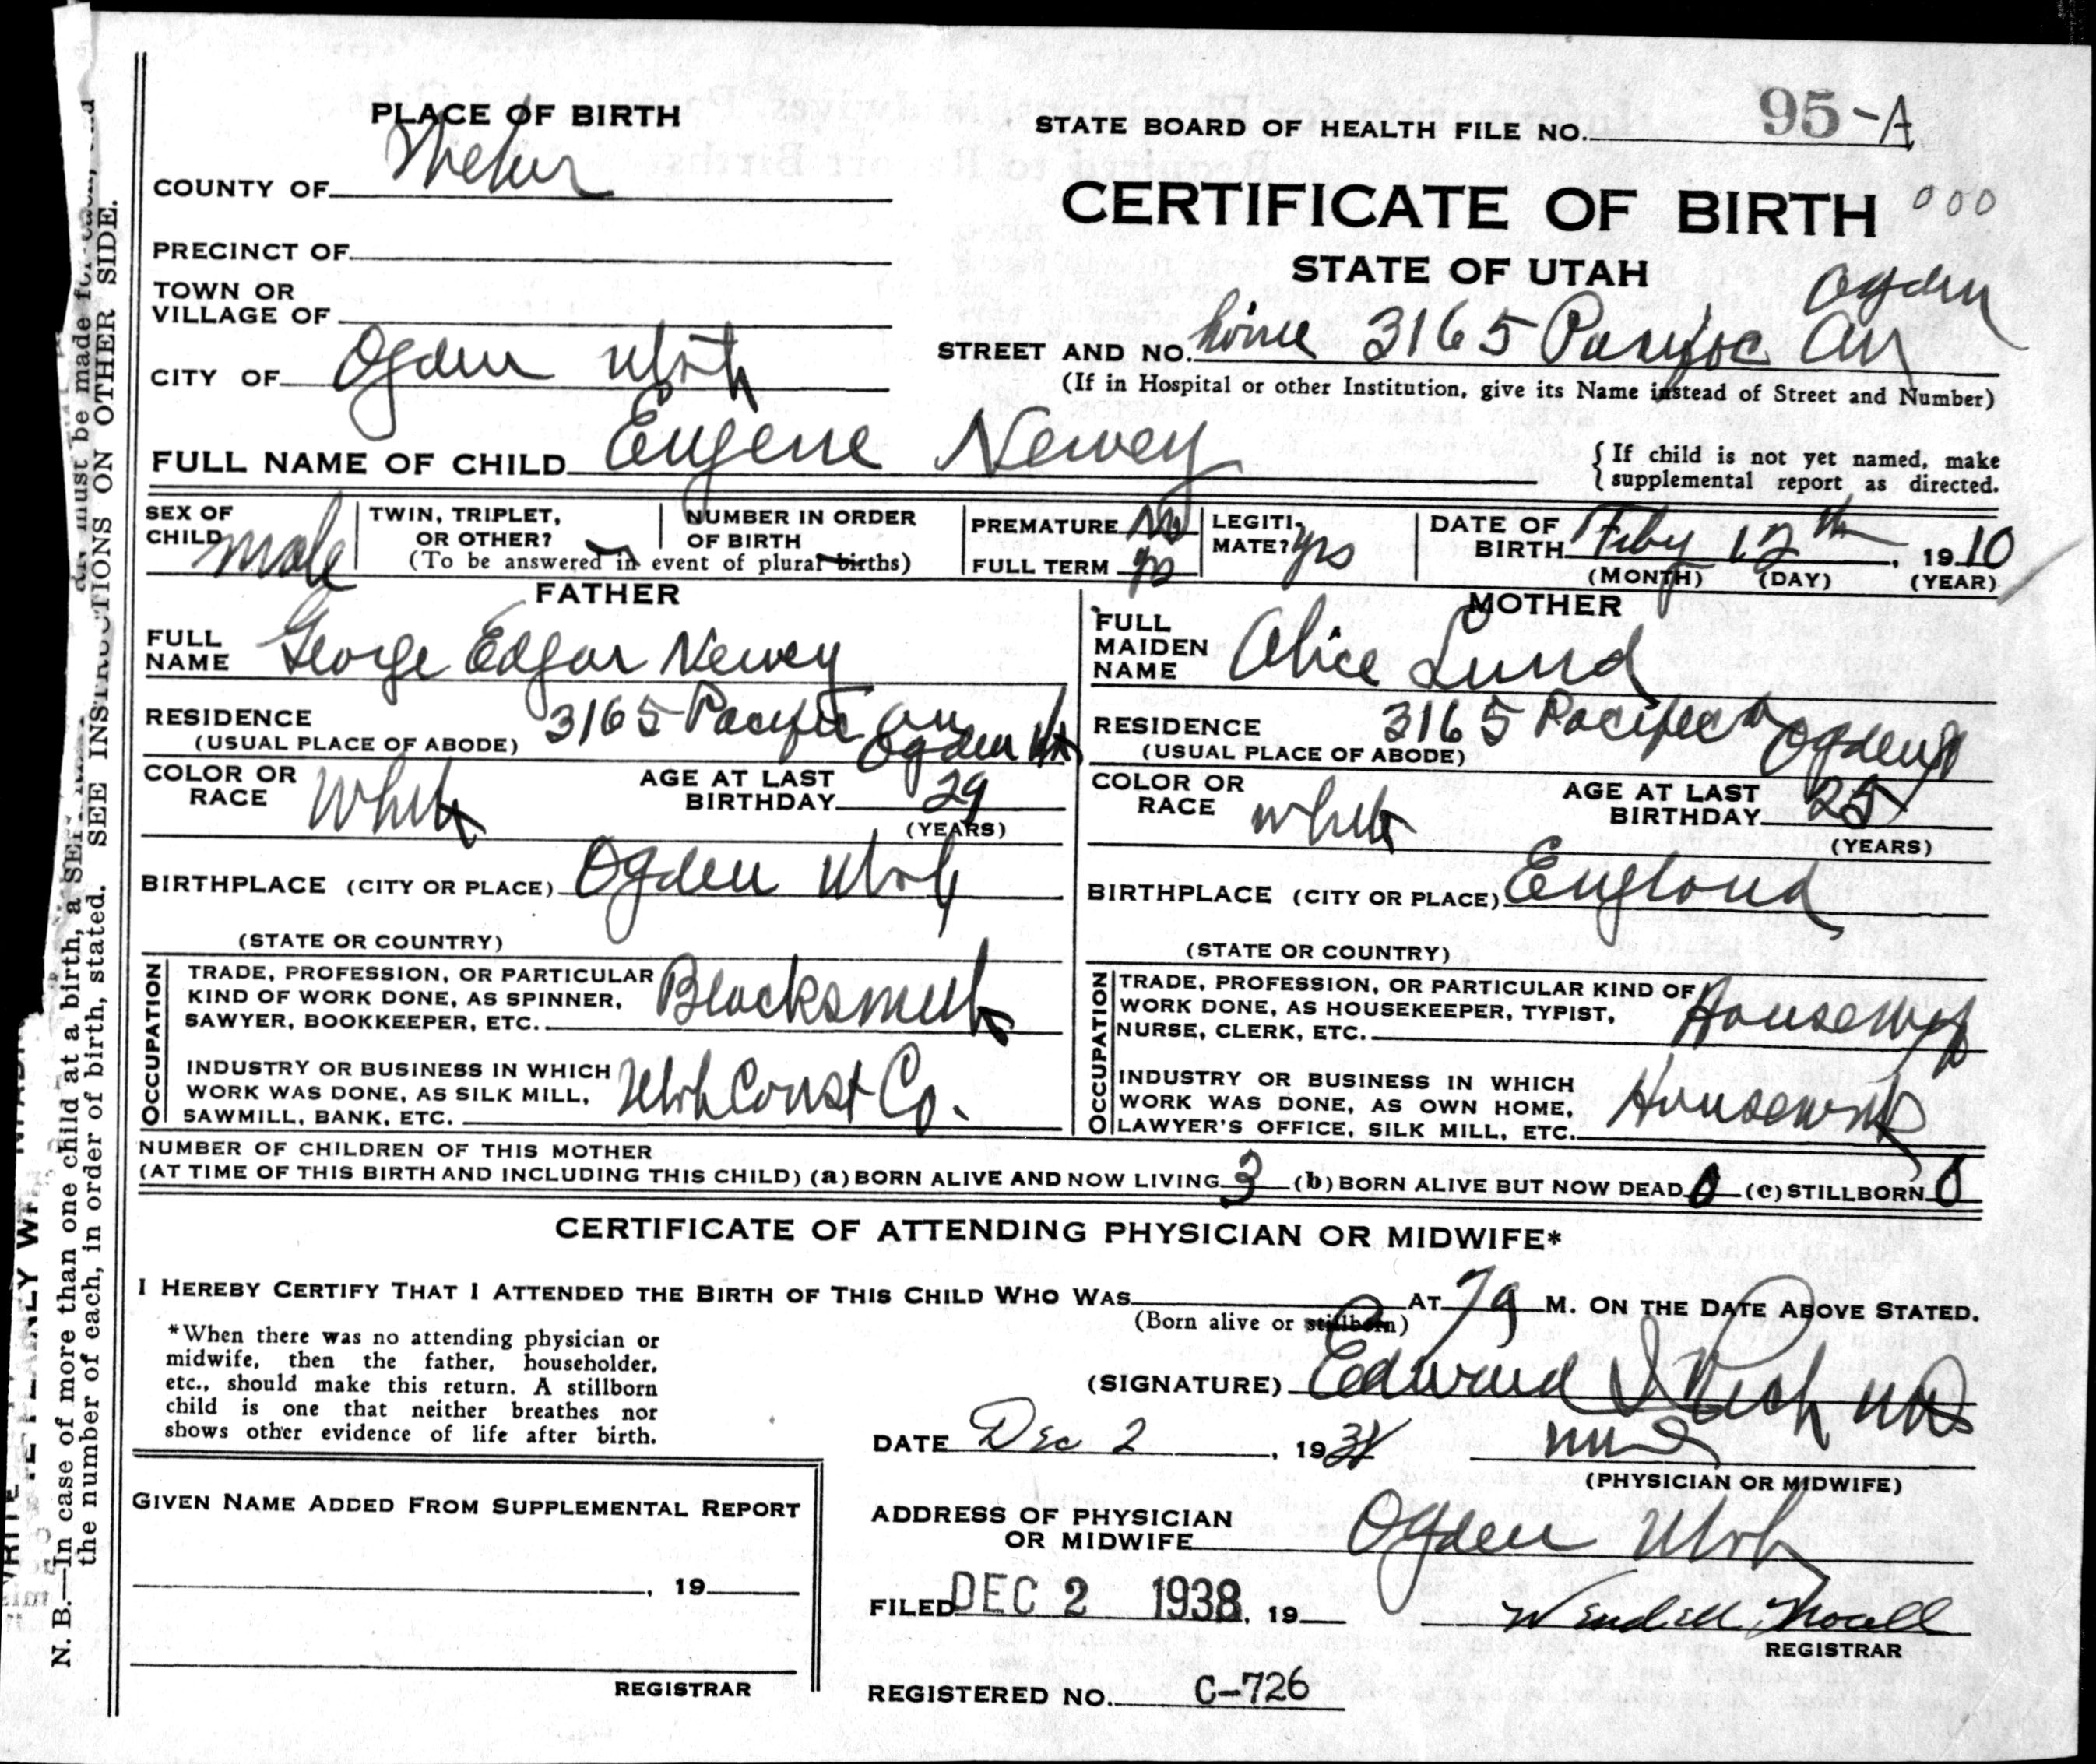 PLACE OF BIRTH
COUNTY OF Weber
PRECINCT OF
TOWN OR
VILLAGE OF
CITY OF Ogden Utah
STATE BOARD OF HEALTH FILE NO. 95-A
CERTIFICATE OF BIRTH 000
STATE OF UTAH
Ogden
STREET AND NO. home 3165 Pacific Av
(If in Hospital or other Institution, give its Name instead of Street and Number)
FULL NAME OF CHILD Eugene Newey
{ If child is not yet named, make
supplemental report as directed.
SEX OF
CHILD male
TWIN, TRIPLET,
OR OTHER?
NUMBER IN ORDER
OF BIRTH
(To be answered in event of plural births)
PREMATURE No
FULL TERM yes
LEGITI-
MATE? yes
DATE OF
BIRTH Feby 12th, 1910
(MONTH) (DAY) (YEAR)
FATHER
FULL
NAME George Edgar Newey
RESIDENCE
(USUAL PLACE OF ABODE) 3165 Pacific Av
Ogden Ut
COLOR OR
RACE White
AGE AT LAST
BIRTHDAY 29
(YEARS)
BIRTHPLACE (CITY OR PLACE) Ogden Utah
(STATE OR COUNTRY)
OCCUPATION
TRADE, PROFESSION, OR PARTICULAR
KIND OF WORK DONE, AS SPINNER,
SAWYER, BOOKKEEPER, ETC. Blacksmith
INDUSTRY OR BUSINESS IN WHICH
WORK WAS DONE, AS SILK MILL,
SAWMILL, BANK, ETC. Utah Const Co.
MOTHER
FULL
MAIDEN
NAME Alice Lund
RESIDENCE
(USUAL PLACE OF ABODE) 3165 Pacific Ogden
COLOR OR
RACE white
AGE AT LAST
BIRTHDAY 25
(YEARS)
BIRTHPLACE (CITY OR PLACE) England
(STATE OR COUNTRY)
OCCUPATION
TRADE, PROFESSION, OR PARTICULAR KIND OF
WORK DONE, AS HOUSEKEEPER, TYPIST,
NURSE, CLERK, ETC. Housewife
INDUSTRY OR BUSINESS IN WHICH
WORK WAS DONE, AS OWN HOME,
LAWYER'S OFFICE, SILK MILL, ETC. Housework
NUMBER OF CHILDREN OF THIS MOTHER
(AT TIME OF THIS BIRTH AND INCLUDING THIS CHILD) (a) BORN ALIVE AND NOW LIVING 3 (b) BORN ALIVE BUT NOW DEAD 0 (c) STILLBORN 0
CERTIFICATE OF ATTENDING PHYSICIAN OR MIDWIFE*
I HEREBY CERTIFY THAT I ATTENDED THE BIRTH OF THIS CHILD WHO WAS AT 7 M. ON THE DATE ABOVE STATED.
(Born alive or stillborn)
*When there was no attending physician or
midwife, then the father, householder,
etc., should make this return. A stillborn
child is one that neither breathes nor
shows other evidence of life after birth.
(SIGNATURE) Edward I Rich MD
DATE Dec 2, 1938
(PHYSICIAN OR MIDWIFE)
ADDRESS OF PHYSICIAN
OR MIDWIFE Ogden Utah
FILED DEC 2 1938, 19
REGISTRAR
REGISTERED NO. C-726
GIVEN NAME ADDED FROM SUPPLEMENTAL REPORT
, 19
REGISTRAR
N. B.—In case of more than one child at a birth, a
must be made for
the number of each, in order of birth, stated. SEE INSTRUCTIONS ON OTHER SIDE.